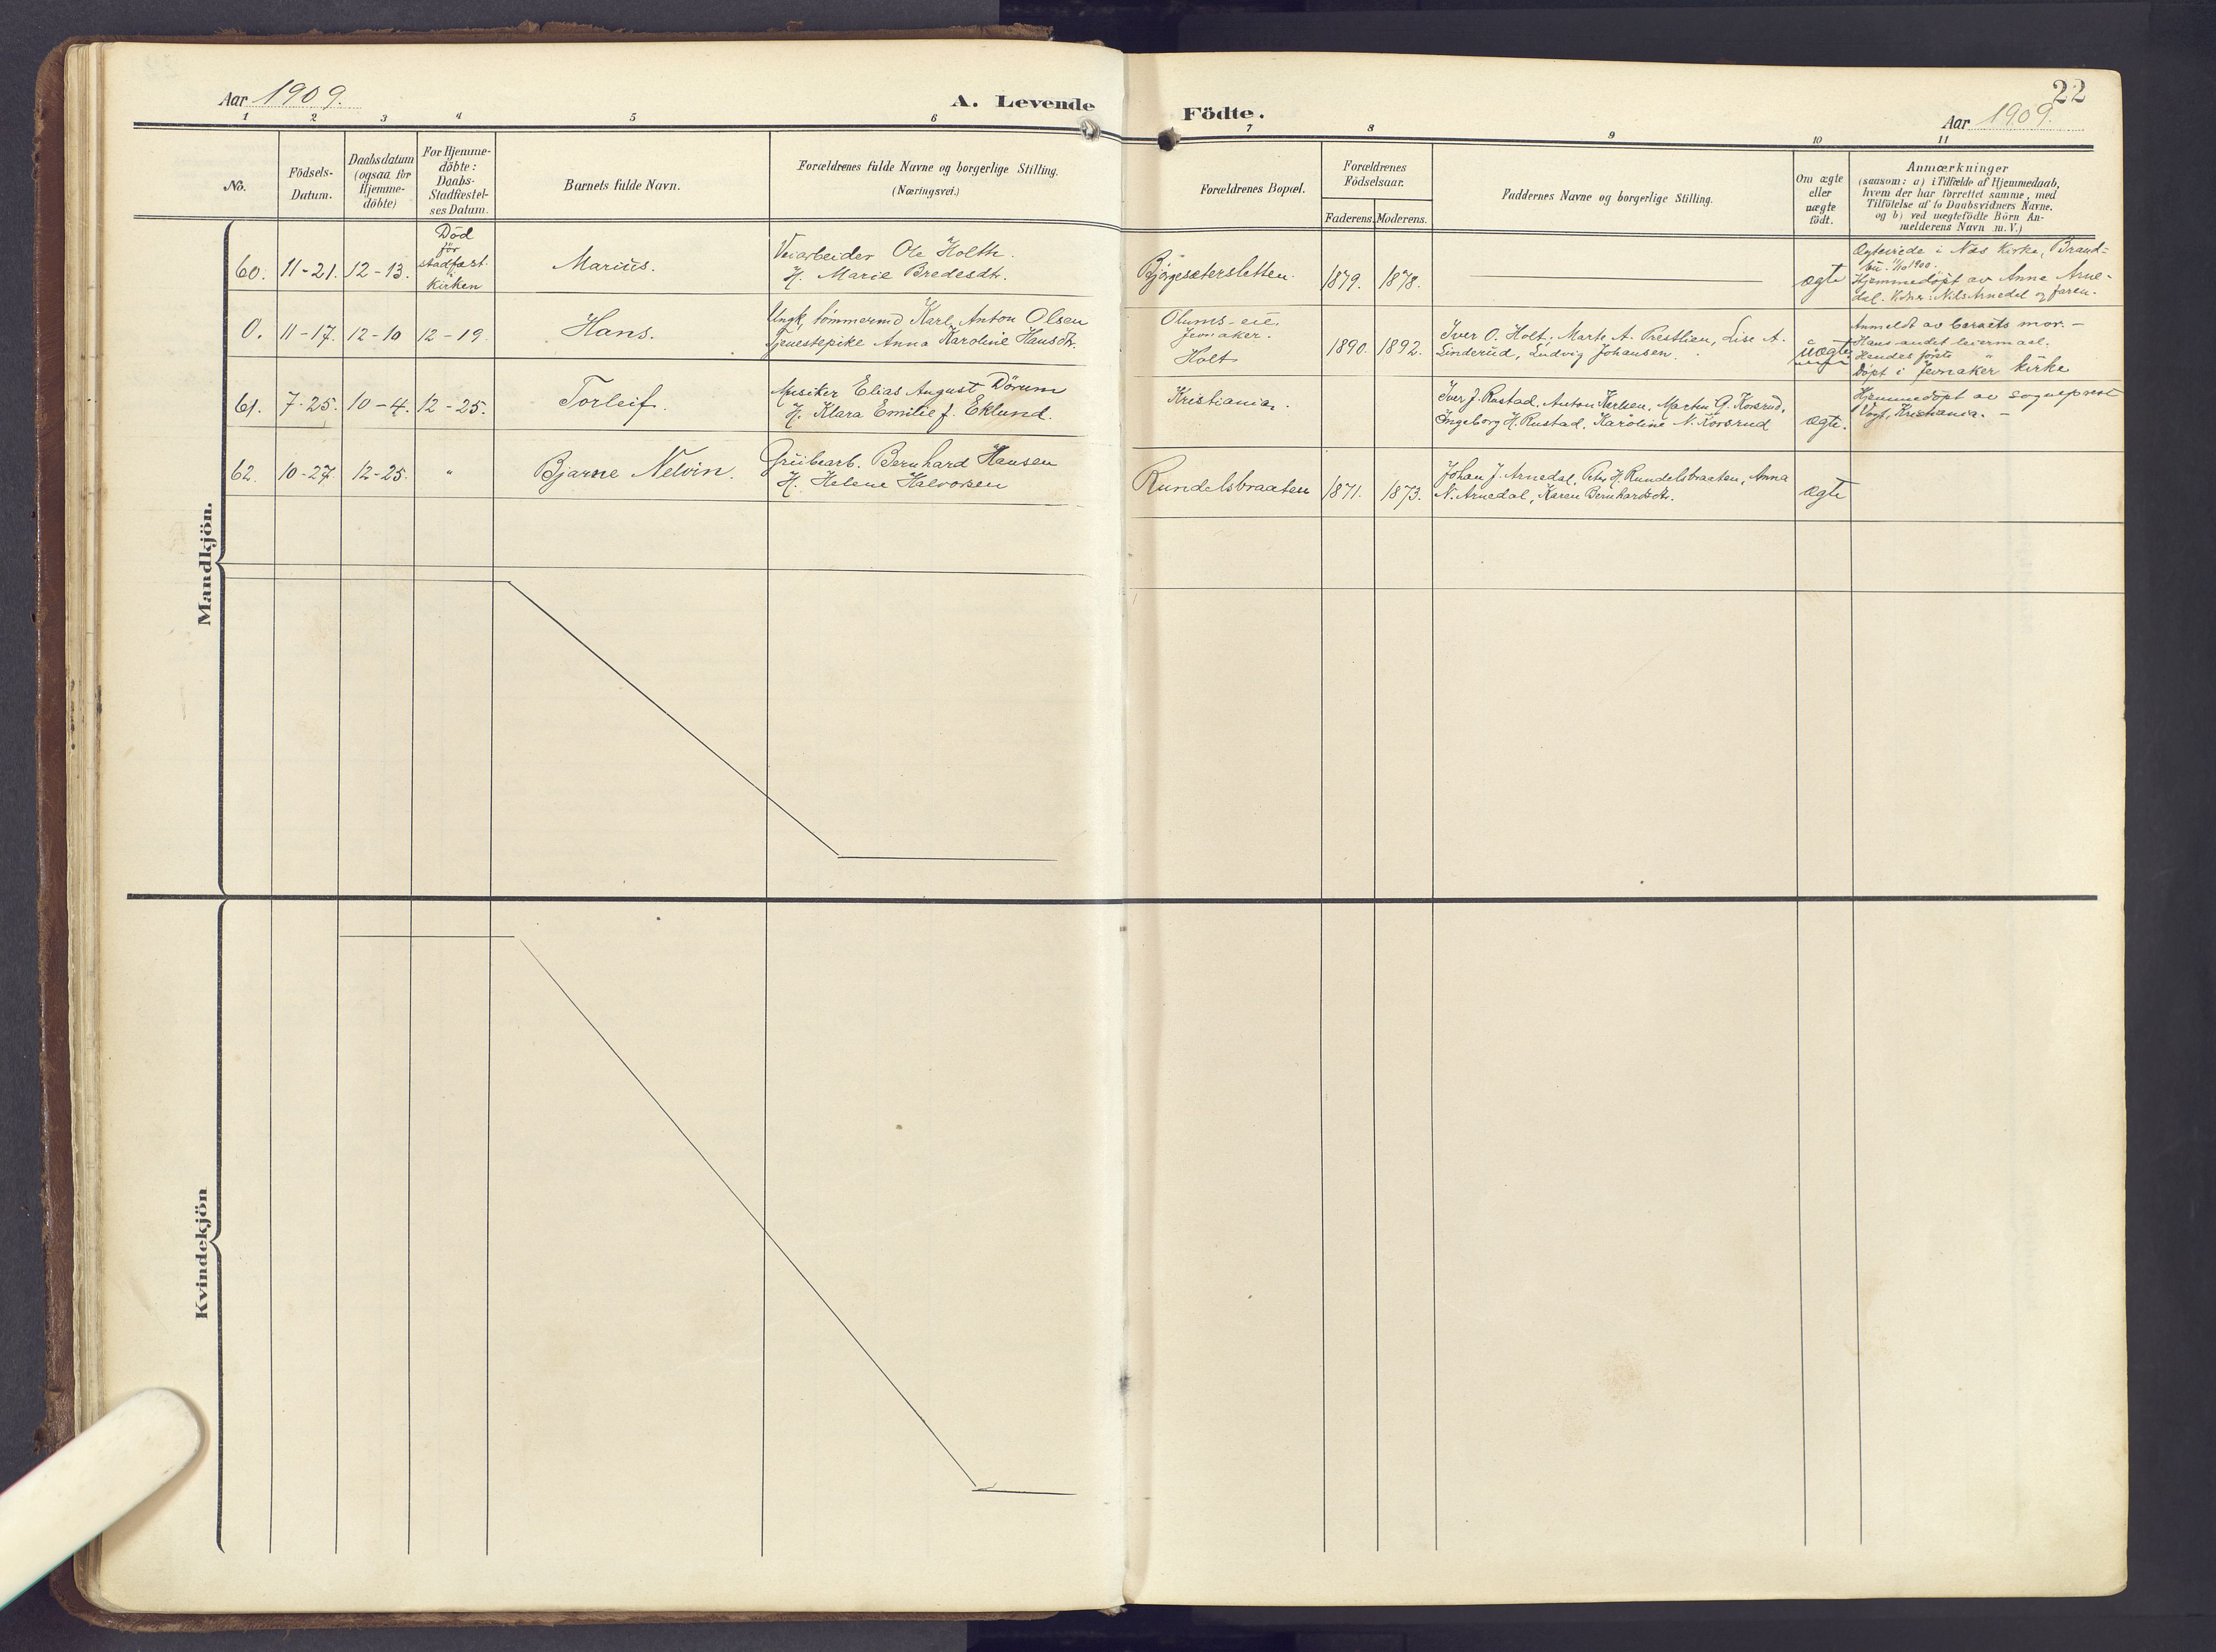 Aar 1909.
A. Levende Födte.
22
Aar 1909.
1 2 3 4 5 6 7 8 9 10 11
No.
Födsels-
Datum.
Daabsdatum
(ogsaa for
Hjemme-
döbte)
For Hjemme-
döbte:
Daabs-
Stadfæstel-
ses Datum.
Barnets fulde Navn.
Forældrenes fulde Navne og borgerlige Stilling.
(Næringsvei.)
Forældrenes Bopæl.
Forældrenes
Födselsaar.
Faderens. Moderens.
Faddernes Navne og borgerlige Stilling.
Om ægte
eller
uægte
födt.
Anmærkninger
(saasom: a) i Tilfælde af Hjemmedaab,
hvem der har forrettet samme, med
Tilföielse af to Daabsvidners Navne.
og b) ved uægtefödte Börn An-
melderens Navn m. V.)
Mandkjön.
60. 11-21. 12-13.
Död
för
stadfæst.
i
kirken
Marius.
Veiarbeider Ole Holth.
H. Marie Bredesdtr.
Björgesætersletten.
1879. 1878.
ægte
Ægteviede i Næs Kirke, Brand-
bu 11/10 1900.
Hjemmedöpt av Anna Arne-
dal. Vidner: Nils Arnedal og faren.
0. 11-17. 12-10 12-19.
Hans.
Ungk. tömmermd Karl Anton Olsen
Tjenestepike Anna Karoline Hansdtr.
Olums-eie,
Jevnaker.
Holt
1890. 1892.
Iver O. Holt, Marte A. Prestlien, Lise A.
Linderud, Ludvig Johansen.
uægte
Anmeldt av barnets mor. —
Hans andet leiermaal.
Hendes förste "
Döpt i Jevnaker kirke
61. 7-25. 10-4. 12-25.
Torleif.
Musiker Elias August Dörum
H. Klara Emilie f. Eklund.
Kristiania.
Iver J. Rustad, Anton Karlsen, Martin G. Korsrud,
Ingeborg H. Rustad, Karoline N. Korsrud
ægte.
Hjemmedöpt av sogneprest
Vogt, Kristiania. —
62. 10-27. 12-25. "
Bjarne Nelvin.
Grubearb. Bernhard Hansen
H. Helene Halvorsen
Rundelsbraaten
1871. 1873.
Johan J. Arnedal, Peter H. Rundelsbraaten, Anna
N. Arnedal, Karen Bernhardsdtr.
ægte
Kvindekjön